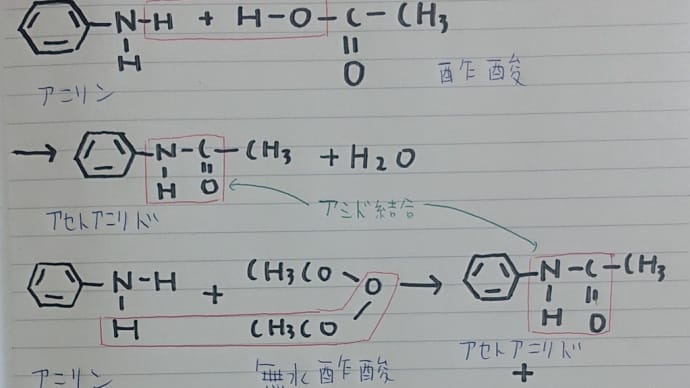 N-H + H-O-C-CH3
H O
アニリン 酢酸
→ N-C-CH3 + H2O
H O
アセトアニリド アミド結合
N-H + CH3CO O → N-C-CH3
H CH3CO H O
アニリン 無水酢酸 アセトアニリド
+